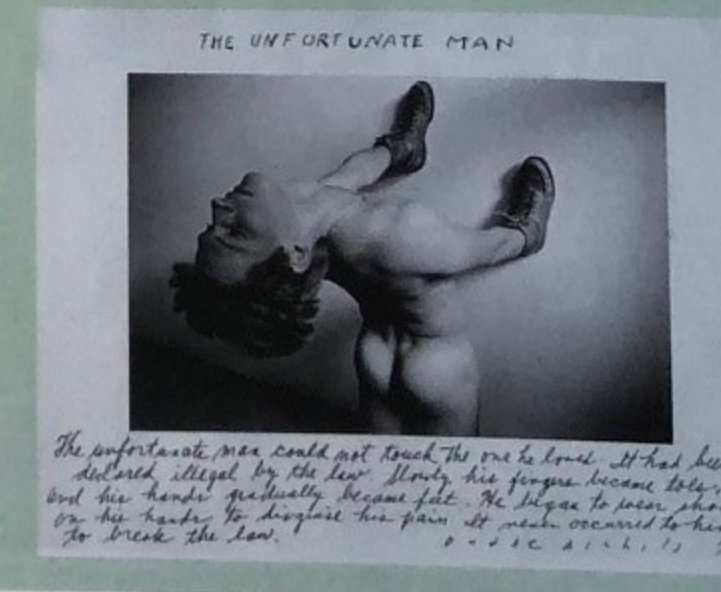 THE UNFORTUNATE MAN
The unfortunate man could not touch the one he loved. It had bee
declared illegal by the law. Slowly his fingers became toes
and his hands gradually became feet. He began to wear sho
on his hands to disguise his pain. It never occurred to hi
to break the law.